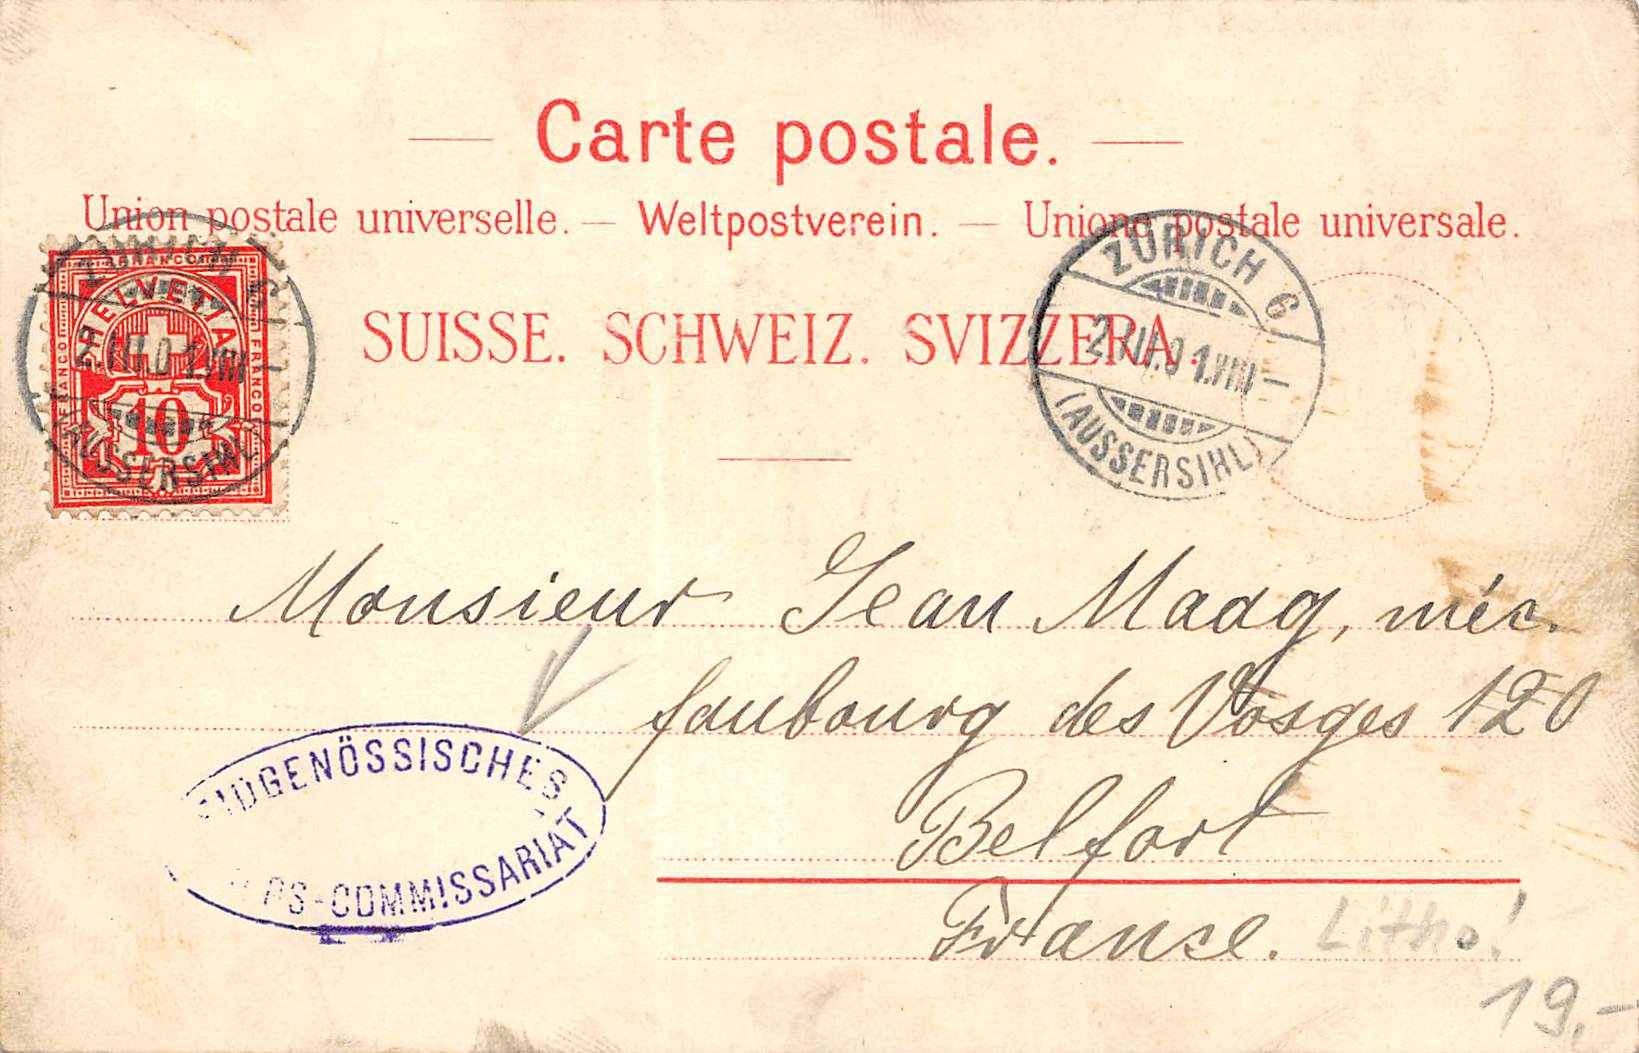 Carte postale.
Union postale universelle. — Weltpostverein. — Unione postale universale.
SUISSE. SCHWEIZ. SVIZZERA.
FRANCO
FRANCO
FRANCO
HELVETIA
10
ZÜRICH 6
2.III.01.VIII
(AUSSERSIHL)
ZÜRICH 6
2.III.01.VIII—
(AUSSERSIHL)
Monsieur Jean Maag, méc.
faubourg des Vosges 120
Belfort
France.
EIDGENÖSSISCHES
PS-COMMISSARIAT
Litho!
19.-